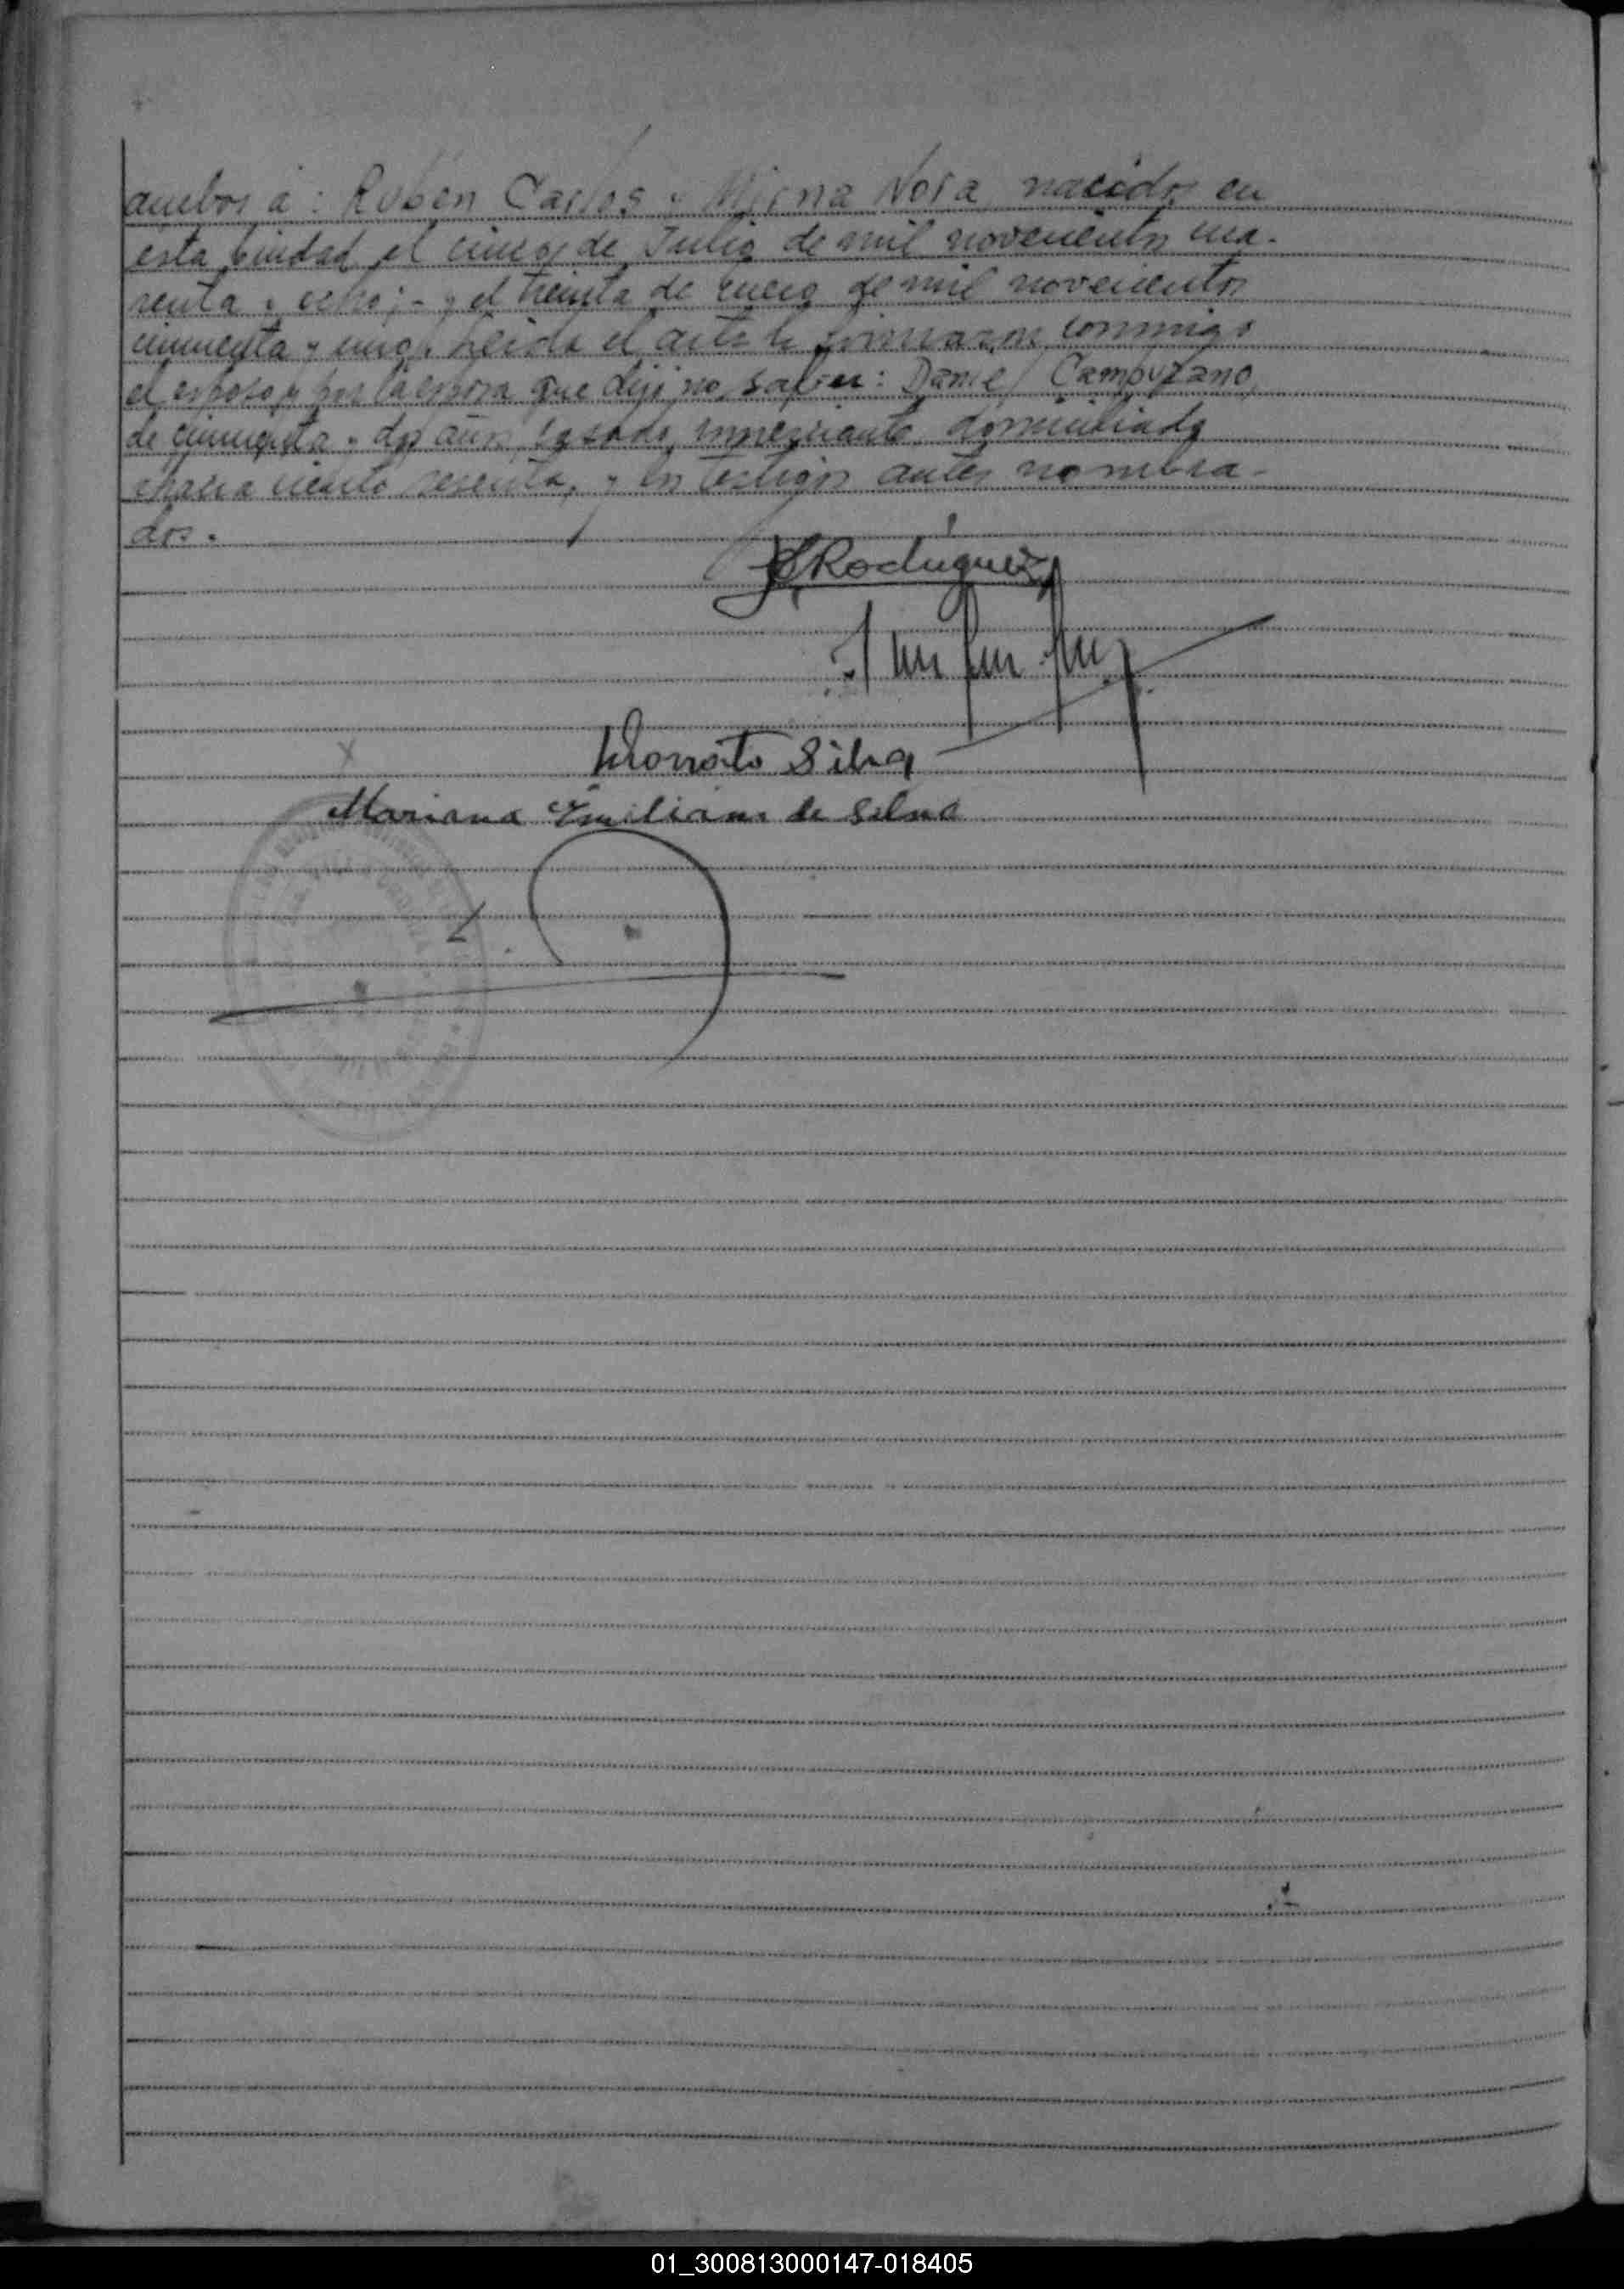 ambos a: Rubén Carlos y Mirna Nora, nacidos en
esta ciudad el cinco de Julio de mil novecientos cua-
renta y ocho; - y el treinta de enero de mil novecientos
cincuenta y uno. Leida el acta la firmaron conmigo
el esposo y por la esposa que dijo no saber: Daniel Campuzano,
de cincuenta y dos años, casado, domiciliado
ciento sesenta, y los testigos antes nombra-
dos.
Rodriguez
Honorato Silva
Mariana Emiliani de Silva
01_300813000147-018405